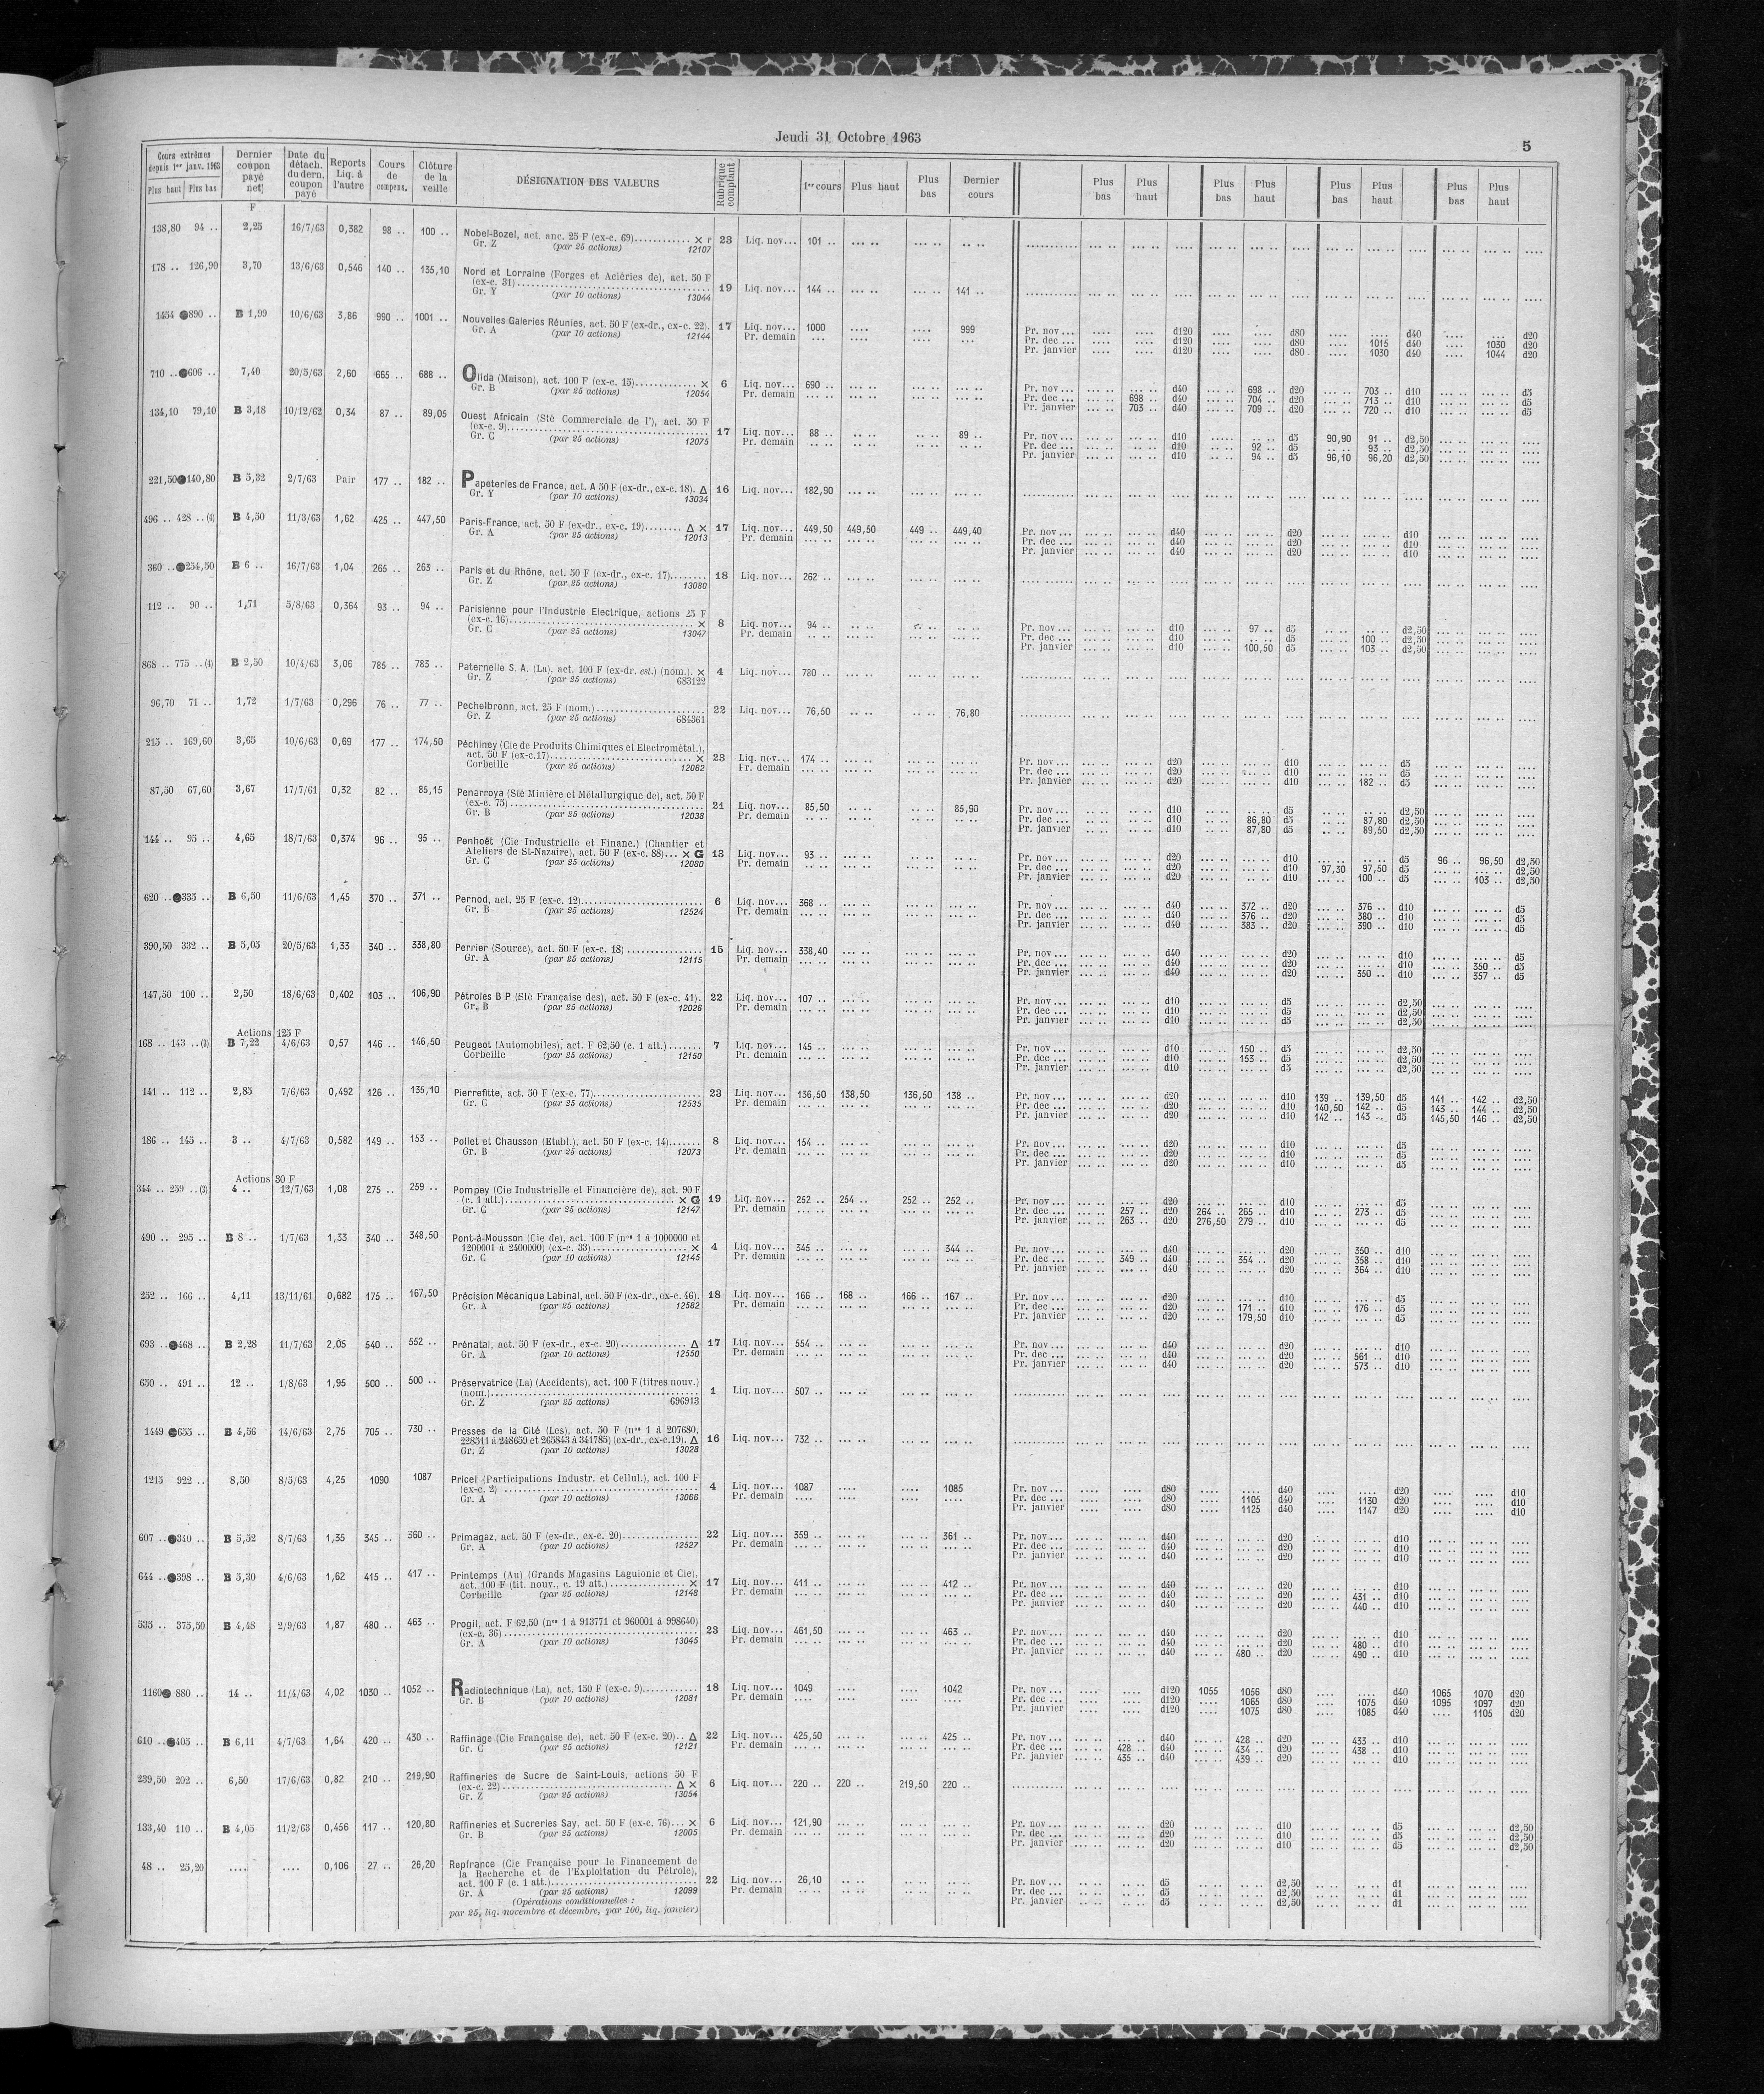 Jeudi 31 Octobre 1963
5
Cours extrêmes depuis 1er janv. 1963 Plus haut Plus bas Dernier coupon payé net Date du détach. du dern. coupon payé Reports Liq. à l'autre Cours de compens. Clôture de la veille DÉSIGNATION DES VALEURS Rubrique comptant 1er cours Plus haut Plus bas Dernier cours Plus bas Plus haut Plus bas Plus haut Plus bas Plus haut Plus bas Plus haut
F
138,80 94 .. 2,25 16/7/63 0,382 98 .. 100 .. Nobel-Bozel, act. anc. 25 F (ex-c. 69) × r 23 Liq. nov... 101 ..
Gr. Z (par 25 actions) 12107
178 .. 126,90 3,70 13/6/63 0,546 140 .. 135,10 Nord et Lorraine (Forges et Aciéries de), act. 50 F
(ex-c. 31) 19 Liq. nov... 144 .. 141 ..
Gr. Y (par 10 actions) 13044
1454 ●890 .. B 1,99 10/6/63 3,86 990 .. 1001 .. Nouvelles Galeries Réunies, act. 50 F (ex-dr., ex-c. 22). 17 Liq. nov... 1000 999 Pr. nov ... d120 d80 d40 d20
Gr. A (par 10 actions) 12144 Pr. demain Pr. dec ... d120 d80 1015 d40 1030 d20
Pr. janvier d120 d80 1030 d40 1044 d20
710 .. ●606 .. 7,40 20/5/63 2,60 665 .. 688 .. Olida (Maison), act. 100 F (ex-c. 15) × 6 Liq. nov... 690 .. Pr. nov ... d40 698 .. d20 703 .. d10 d5
Gr. B (par 25 actions) 12054 Pr. demain Pr. dec ... 698 .. d40 704 .. d20 713 .. d10 d5
Pr. janvier 703 .. d40 709 .. d20 720 .. d10 d5
134,10 79,10 B 3,18 10/12/62 0,34 87 .. 89,05 Ouest Africain (Sté Commerciale de l'), act. 50 F
(ex-c. 9) 17 Liq. nov... 88 .. 89 .. Pr. nov ... d10 d5 90,90 91 .. d2,50
Gr. C (par 25 actions) 12075 Pr. demain Pr. dec ... d10 92 .. d5 93 .. d2,50
Pr. janvier d10 94 .. d5 96,10 96,20 d2,50
221,50 ●140,80 B 5,32 2/7/63 Pair 177 .. 182 .. Papeteries de France, act. A 50 F (ex-dr., ex-c. 18). Δ 16 Liq. nov... 182,90
Gr. Y (par 10 actions) 13034
496 .. 428 .. (4) B 4,50 11/3/63 1,62 425 .. 447,50 Paris-France, act. 50 F (ex-dr., ex-c. 19) Δ × 17 Liq. nov... 449,50 449,50 449 .. 449,40 Pr. nov ... d40 d20 d10
Gr. A (par 25 actions) 12013 Pr. demain Pr. dec ... d40 d20 d10
Pr. janvier d40 d20 d10
360 .. ●254,50 B 6 .. 16/7/63 1,04 265 .. 263 .. Paris et du Rhône, act. 50 F (ex-dr., ex-c. 17) 18 Liq. nov... 262 ..
Gr. Z (par 25 actions) 13080
112 .. 90 .. 1,71 5/8/63 0,364 93 .. 94 .. Parisienne pour l'Industrie Electrique, actions 25 F
(ex-c. 16) × 8 Liq. nov... 94 .. Pr. nov ... d10 97 .. d5 d2,50
Gr. C (par 25 actions) 13047 Pr. demain Pr. dec ... d10 d5 100 .. d2,50
Pr. janvier d10 100,50 d5 103 .. d2,50
868 .. 775 .. (4) B 2,50 10/4/63 3,06 785 .. 785 .. Paternelle S. A. (La), act. 100 F (ex-dr. est.) (nom.). × 4 Liq. nov... 780 ..
Gr. Z (par 25 actions) 683122
96,70 71 .. 1,72 1/7/63 0,296 76 .. 77 .. Pechelbronn, act. 25 F (nom.) 22 Liq. nov... 76,50 76,80
Gr. Z (par 25 actions) 684361
215 .. 169,60 3,65 10/6/63 0,69 177 .. 174,50 Péchiney (Cie de Produits Chimiques et Electrométal.),
act. 50 F (ex-c.17) × 23 Liq. nov... 174 .. Pr. nov ... d20 d10 d5
Corbeille (par 25 actions) 12062 Pr. demain Pr. dec ... d20 d10 d5
Pr. janvier d20 d10 182 .. d5
87,50 67,60 3,67 17/7/61 0,32 82 .. 85,15 Penarroya (Sté Minière et Métallurgique de), act. 50 F
(ex-c. 75) 21 Liq. nov... 85,50 85,90 Pr. nov ... d10 d5 d2,50
Gr. B (par 25 actions) 12038 Pr. demain Pr. dec ... d10 86,80 d5 87,80 d2,50
Pr. janvier d10 87,80 d5 89,50 d2,50
144 .. 95 .. 4,65 18/7/63 0,374 96 .. 95 .. Penhoët (Cie Industrielle et Financ.) (Chantier et
Ateliers de St-Nazaire), act. 50 F (ex-c. 88)... × G 13 Liq. nov... 93 .. Pr. nov ... d20 d10 d5 96 .. 96,50 d2,50
Gr. C (par 25 actions) 12080 Pr. demain Pr. dec ... d20 d10 97,30 97,50 d5 d2,50
Pr. janvier d20 d10 100 .. d5 103 .. d2,50
620 .. ●335 .. B 6,50 11/6/63 1,45 370 .. 371 .. Pernod, act. 25 F (ex-c. 12) 6 Liq. nov... 368 .. Pr. nov ... d40 372 .. d20 376 .. d10 d5
Gr. B (par 25 actions) 12524 Pr. demain Pr. dec ... d40 376 .. d20 380 .. d10 d5
Pr. janvier d40 383 .. d20 390 .. d10 d5
390,50 332 .. B 5,05 20/5/63 1,33 340 .. 338,80 Perrier (Source), act. 50 F (ex-c. 18) 15 Liq. nov... 338,40 Pr. nov ... d40 d20 d10 d5
Gr. A (par 25 actions) 12115 Pr. demain Pr. dec ... d40 d20 d10 350 .. d5
Pr. janvier d40 d20 350 .. d10 357 .. d5
147,50 100 .. 2,50 18/6/63 0,402 103 .. 106,90 Pétroles B P (Sté Française des), act. 50 F (ex-c. 41). 22 Liq. nov... 107 .. Pr. nov ... d10 d5 d2,50
Gr. B (par 25 actions) 12026 Pr. demain Pr. dec ... d10 d5 d2,50
Pr. janvier d10 d5 d2,50
Actions 125 F
168 .. 143 .. (3) B 7,22 4/6/63 0,57 146 .. 146,50 Peugeot (Automobiles), act. F 62,50 (c. 1 att.) 7 Liq. nov... 145 .. Pr. nov ... d10 150 .. d5 d2,50
Corbeille (par 25 actions) 12150 Pr. demain Pr. dec ... d10 153 .. d5 d2,50
Pr. janvier d10 d5 d2,50
141 .. 112 .. 2,85 7/6/63 0,492 126 .. 135,10 Pierrefitte, act. 50 F (ex-c. 77) 23 Liq. nov... 136,50 138,50 136,50 138 .. Pr. nov ... d20 d10 139 .. 139,50 d5 141 .. 142 .. d2,50
Gr. C (par 25 actions) 12535 Pr. demain Pr. dec ... d20 d10 140,50 142 .. d5 143 .. 144 .. d2,50
Pr. janvier d20 d10 142 .. 143 .. d5 145,50 146 .. d2,50
186 .. 145 .. 3 .. 4/7/63 0,582 149 .. 153 .. Poliet et Chausson (Etabl.), act. 50 F (ex-c. 14) 8 Liq. nov... 154 .. Pr. nov ... d20 d10 d5
Gr. B (par 25 actions) 12073 Pr. demain Pr. dec ... d20 d10 d5
Pr. janvier d20 d10 d5
Actions 30 F
344 .. 259 .. (3) 4 .. 12/7/63 1,08 275 .. 259 .. Pompey (Cie Industrielle et Financière de), act. 90 F
(c. 1 att.) × G 19 Liq. nov... 252 .. 254 .. 252 .. 252 .. Pr. nov ... d20 d10 d5
Gr. C (par 25 actions) 12147 Pr. demain Pr. dec ... 257 .. d20 264 .. 265 .. d10 273 .. d5
Pr. janvier 263 .. d20 276,50 279 .. d10 d5
490 .. 295 .. B 8 .. 1/7/63 1,33 340 .. 348,50 Pont-à-Mousson (Cie de), act. 100 F (nos 1 à 1000000 et
1200001 à 2400000) (ex-c. 33) × 4 Liq. nov... 345 .. 344 .. Pr. nov ... d40 d20 350 .. d10
Gr. C (par 10 actions) 12145 Pr. demain Pr. dec ... 349 .. d40 354 .. d20 358 .. d10
Pr. janvier d40 d20 364 .. d10
252 .. 166 .. 4,11 13/11/61 0,682 175 .. 167,50 Précision Mécanique Labinal, act. 50 F (ex-dr., ex-c. 46). 18 Liq. nov... 166 .. 168 .. 166 .. 167 .. Pr. nov ... d20 d10 d5
Gr. A (par 25 actions) 12582 Pr. demain Pr. dec ... d20 171 .. d10 176 .. d5
Pr. janvier d20 179,50 d10 d5
693 .. ●468 .. B 2,28 11/7/63 2,05 540 .. 552 .. Prénatal, act. 50 F (ex-dr., ex-c. 20) Δ 17 Liq. nov... 554 .. Pr. nov ... d40 d20 d10
Gr. A (par 10 actions) 12550 Pr. demain Pr. dec ... d40 d20 561 .. d10
Pr. janvier d40 d20 573 .. d10
650 .. 491 .. 12 .. 1/8/63 1,95 500 .. 500 .. Préservatrice (La) (Accidents), act. 100 F (titres nouv.)
(nom.) 1 Liq. nov... 507 ..
Gr. Z (par 25 actions) 696913
1449 ●655 .. B 4,56 14/6/63 2,75 705 .. 730 .. Presses de la Cité (Les), act. 50 F (nos 1 à 207680,
228511 à 248659 et 265843 à 341785) (ex-dr., ex-c.19). Δ 16 Liq. nov... 732 ..
Gr. Z (par 10 actions) 13028
1215 922 .. 8,50 8/5/63 4,25 1090 1087 Pricel (Participations Industr. et Cellul.), act. 100 F
(ex-c. 2) 4 Liq. nov... 1087 1085 Pr. nov ... d80 d40 d20 d10
Gr. A (par 10 actions) 13066 Pr. demain Pr. dec ... d80 1105 d40 1130 d20 d10
Pr. janvier d80 1125 d40 1147 d20 d10
607 .. ●340 .. B 5,52 8/7/63 1,35 345 .. 360 .. Primagaz, act. 50 F (ex-dr., ex-c. 20) 22 Liq. nov... 359 .. 361 .. Pr. nov ... d40 d20 d10
Gr. A (par 10 actions) 12527 Pr. demain Pr. dec ... d40 d20 d10
Pr. janvier d40 d20 d10
644 .. ●398 .. B 5,30 4/6/63 1,62 415 .. 417 .. Printemps (Au) (Grands Magasins Laguionie et Cie),
act. 100 F (tit. nouv., c. 19 att.) × 17 Liq. nov... 411 .. 412 .. Pr. nov ... d40 d20 d10
Corbeille (par 25 actions) 12148 Pr. demain Pr. dec ... d40 d20 431 .. d10
Pr. janvier d40 d20 440 .. d10
535 .. 375,50 B 4,48 2/9/63 1,87 480 .. 463 .. Progil, act. F 62,50 (nos 1 à 913771 et 960001 à 998640)
(ex-c. 36) 23 Liq. nov... 461,50 463 .. Pr. nov ... d40 d20 d10
Gr. A (par 10 actions) 13045 Pr. demain Pr. dec ... d40 d20 480 .. d10
Pr. janvier d40 480 .. d20 490 .. d10
1160 ● 880 .. 14 .. 11/4/63 4,02 1030 .. 1052 .. Radiotechnique (La), act. 150 F (ex-c. 9) 18 Liq. nov... 1049 1042 Pr. nov ... d120 1055 1056 d80 d40 1065 1070 d20
Gr. B (par 10 actions) 12081 Pr. demain Pr. dec ... d120 1065 d80 1075 d40 1095 1097 d20
Pr. janvier d120 1075 d80 1085 d40 1105 d20
610 .. ●405 .. B 6,11 4/7/63 1,64 420 .. 430 .. Raffinage (Cie Française de), act. 50 F (ex-c. 20).. Δ 22 Liq. nov... 425,50 425 .. Pr. nov ... d40 428 .. d20 433 .. d10
Gr. C (par 25 actions) 12121 Pr. demain Pr. dec ... 428 .. d40 434 .. d20 438 .. d10
Pr. janvier 435 .. d40 439 .. d20 d10
239,50 202 .. 6,50 17/6/63 0,82 210 .. 219,90 Raffineries de Sucre de Saint-Louis, actions 50 F
(ex-c. 22) Δ × 6 Liq. nov... 220 .. 220 .. 219,50 220 ..
Gr. Z (par 25 actions) 13054
133,40 110 .. B 4,05 11/2/63 0,456 117 .. 120,80 Raffineries et Sucreries Say, act. 50 F (ex-c. 76)... × 6 Liq. nov... 121,90 Pr. nov ... d20 d10 d5 d2,50
Gr. B (par 25 actions) 12005 Pr. demain Pr. dec ... d20 d10 d5 d2,50
Pr. janvier d20 d10 d5 d2,50
48 .. 25,20 .... .... 0,106 27 .. 26,20 Repfrance (Cie Française pour le Financement de
la Recherche et de l'Exploitation du Pétrole),
act. 100 F (c. 1 att.) 22 Liq. nov... 26,10 Pr. nov ... d5 d2,50 d1
Gr. A (par 25 actions) 12099 Pr. demain Pr. dec ... d5 d2,50 d1
(Opérations conditionnelles : Pr. janvier d5 d2,50 d1
par 25, liq. novembre et décembre, par 100, liq. janvier)